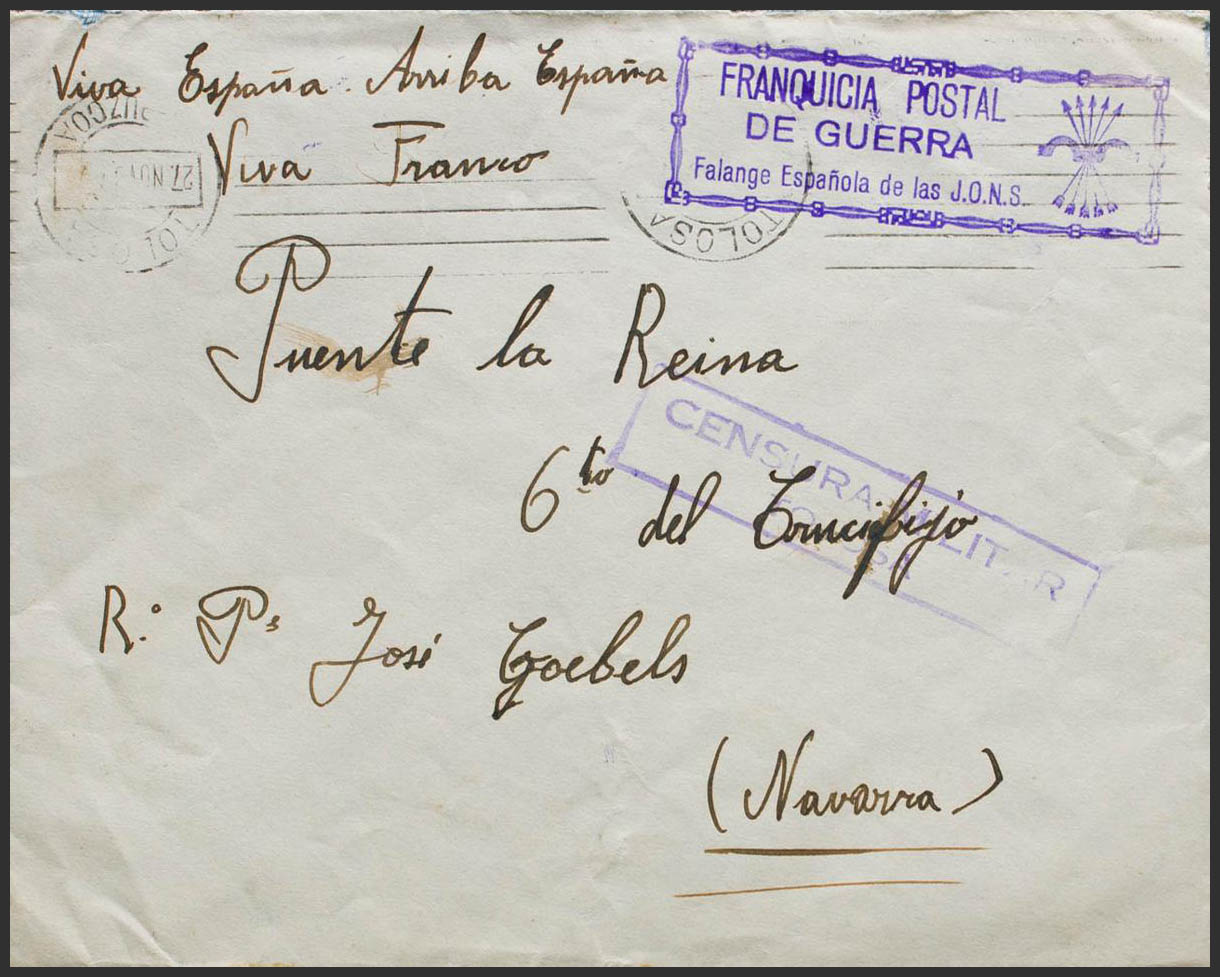 Viva España Arriba España
Viva Franco
FRANQUICIA POSTAL
DE GUERRA
Falange Española de las J.O.N.S.
27. NOV
TOLOSA
Puente la Reina
CENSURA MILITAR
TOLOSA
6to del Crucifijo
R.° Ps José Goebels
(Navarra)